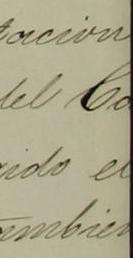 tacion
del Co
rido el
tambien